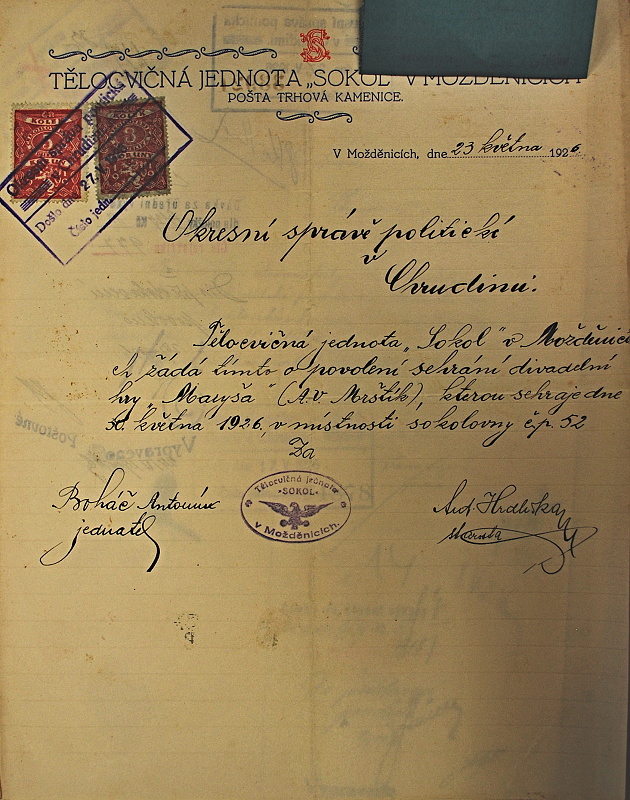 TĚLOCVIČNÁ JEDNOTA „SOKOL“ V MOŽDĚNICÍCH
POŠTA TRHOVÁ KAMENICE.
V Možděnicích, dne 23 května 1926
Došlo dne 27.
Číslo jedn.
Okresní správě politické
v
Chrudimi.
Tělocvičná jednota „Sokol“ v Možděnicí
ch žádá tímto o povolení sehrání divadelní
hry „Maryša“ (A.V Mrštík), kterou sehraje dne
30. května 1926, v místnosti sokolovny č.p. 52
Za
Boháč Antonín
jednatel
Tělocvičná jednota
„SOKOL“
v Možděnicích.
Ant. Hrdlička
starosta